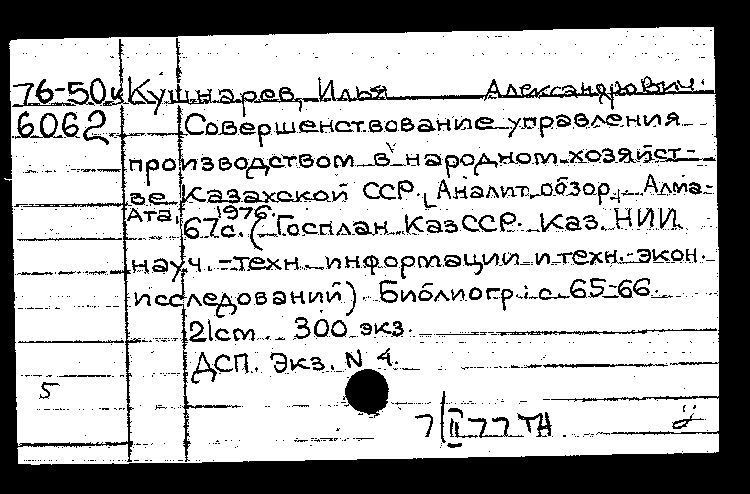 76-50к Кушнарев, Илья Александрович.
6062 Совершенствование управления
производством в народном хозяйст-
ве Казахской ССР. Аналит. обзор. Алма-
Ата, 1976.
67с. (Госплан КазССР. Каз. НИИ
науч.-техн. информации и техн.-экон.
исследований). Библиогр.: с. 65-66.
21cm. 300 экз.
ДСП. Экз. N 4.
5
7/II 77 ТН